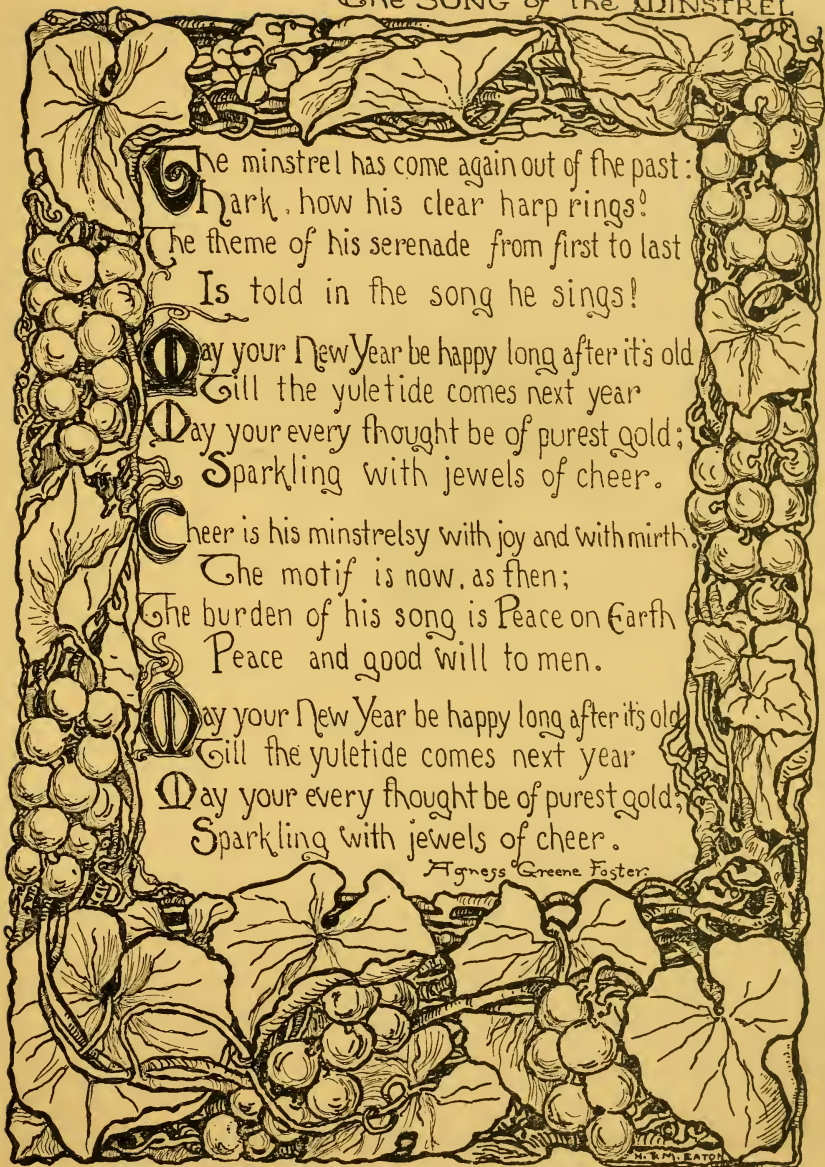 The SONG of the MINSTREL
The minstrel has come again out of the past:
Hark, how his clear harp rings!
The theme of his serenade from first to last
Is told in the song he sings!
May your New Year be happy long after it's old
Till the yuletide comes next year
May your every thought be of purest gold;
Sparkling with jewels of cheer.
Cheer is his minstrelsy with joy and with mirth.
The motif is now, as then;
The burden of his song is Peace on Earth
Peace and good will to men.
May your New Year be happy long after it's old
Till the yuletide comes next year
May your every thought be of purest gold;
Sparkling with jewels of cheer.
Agness Greene Foster.
H. & M. EATON